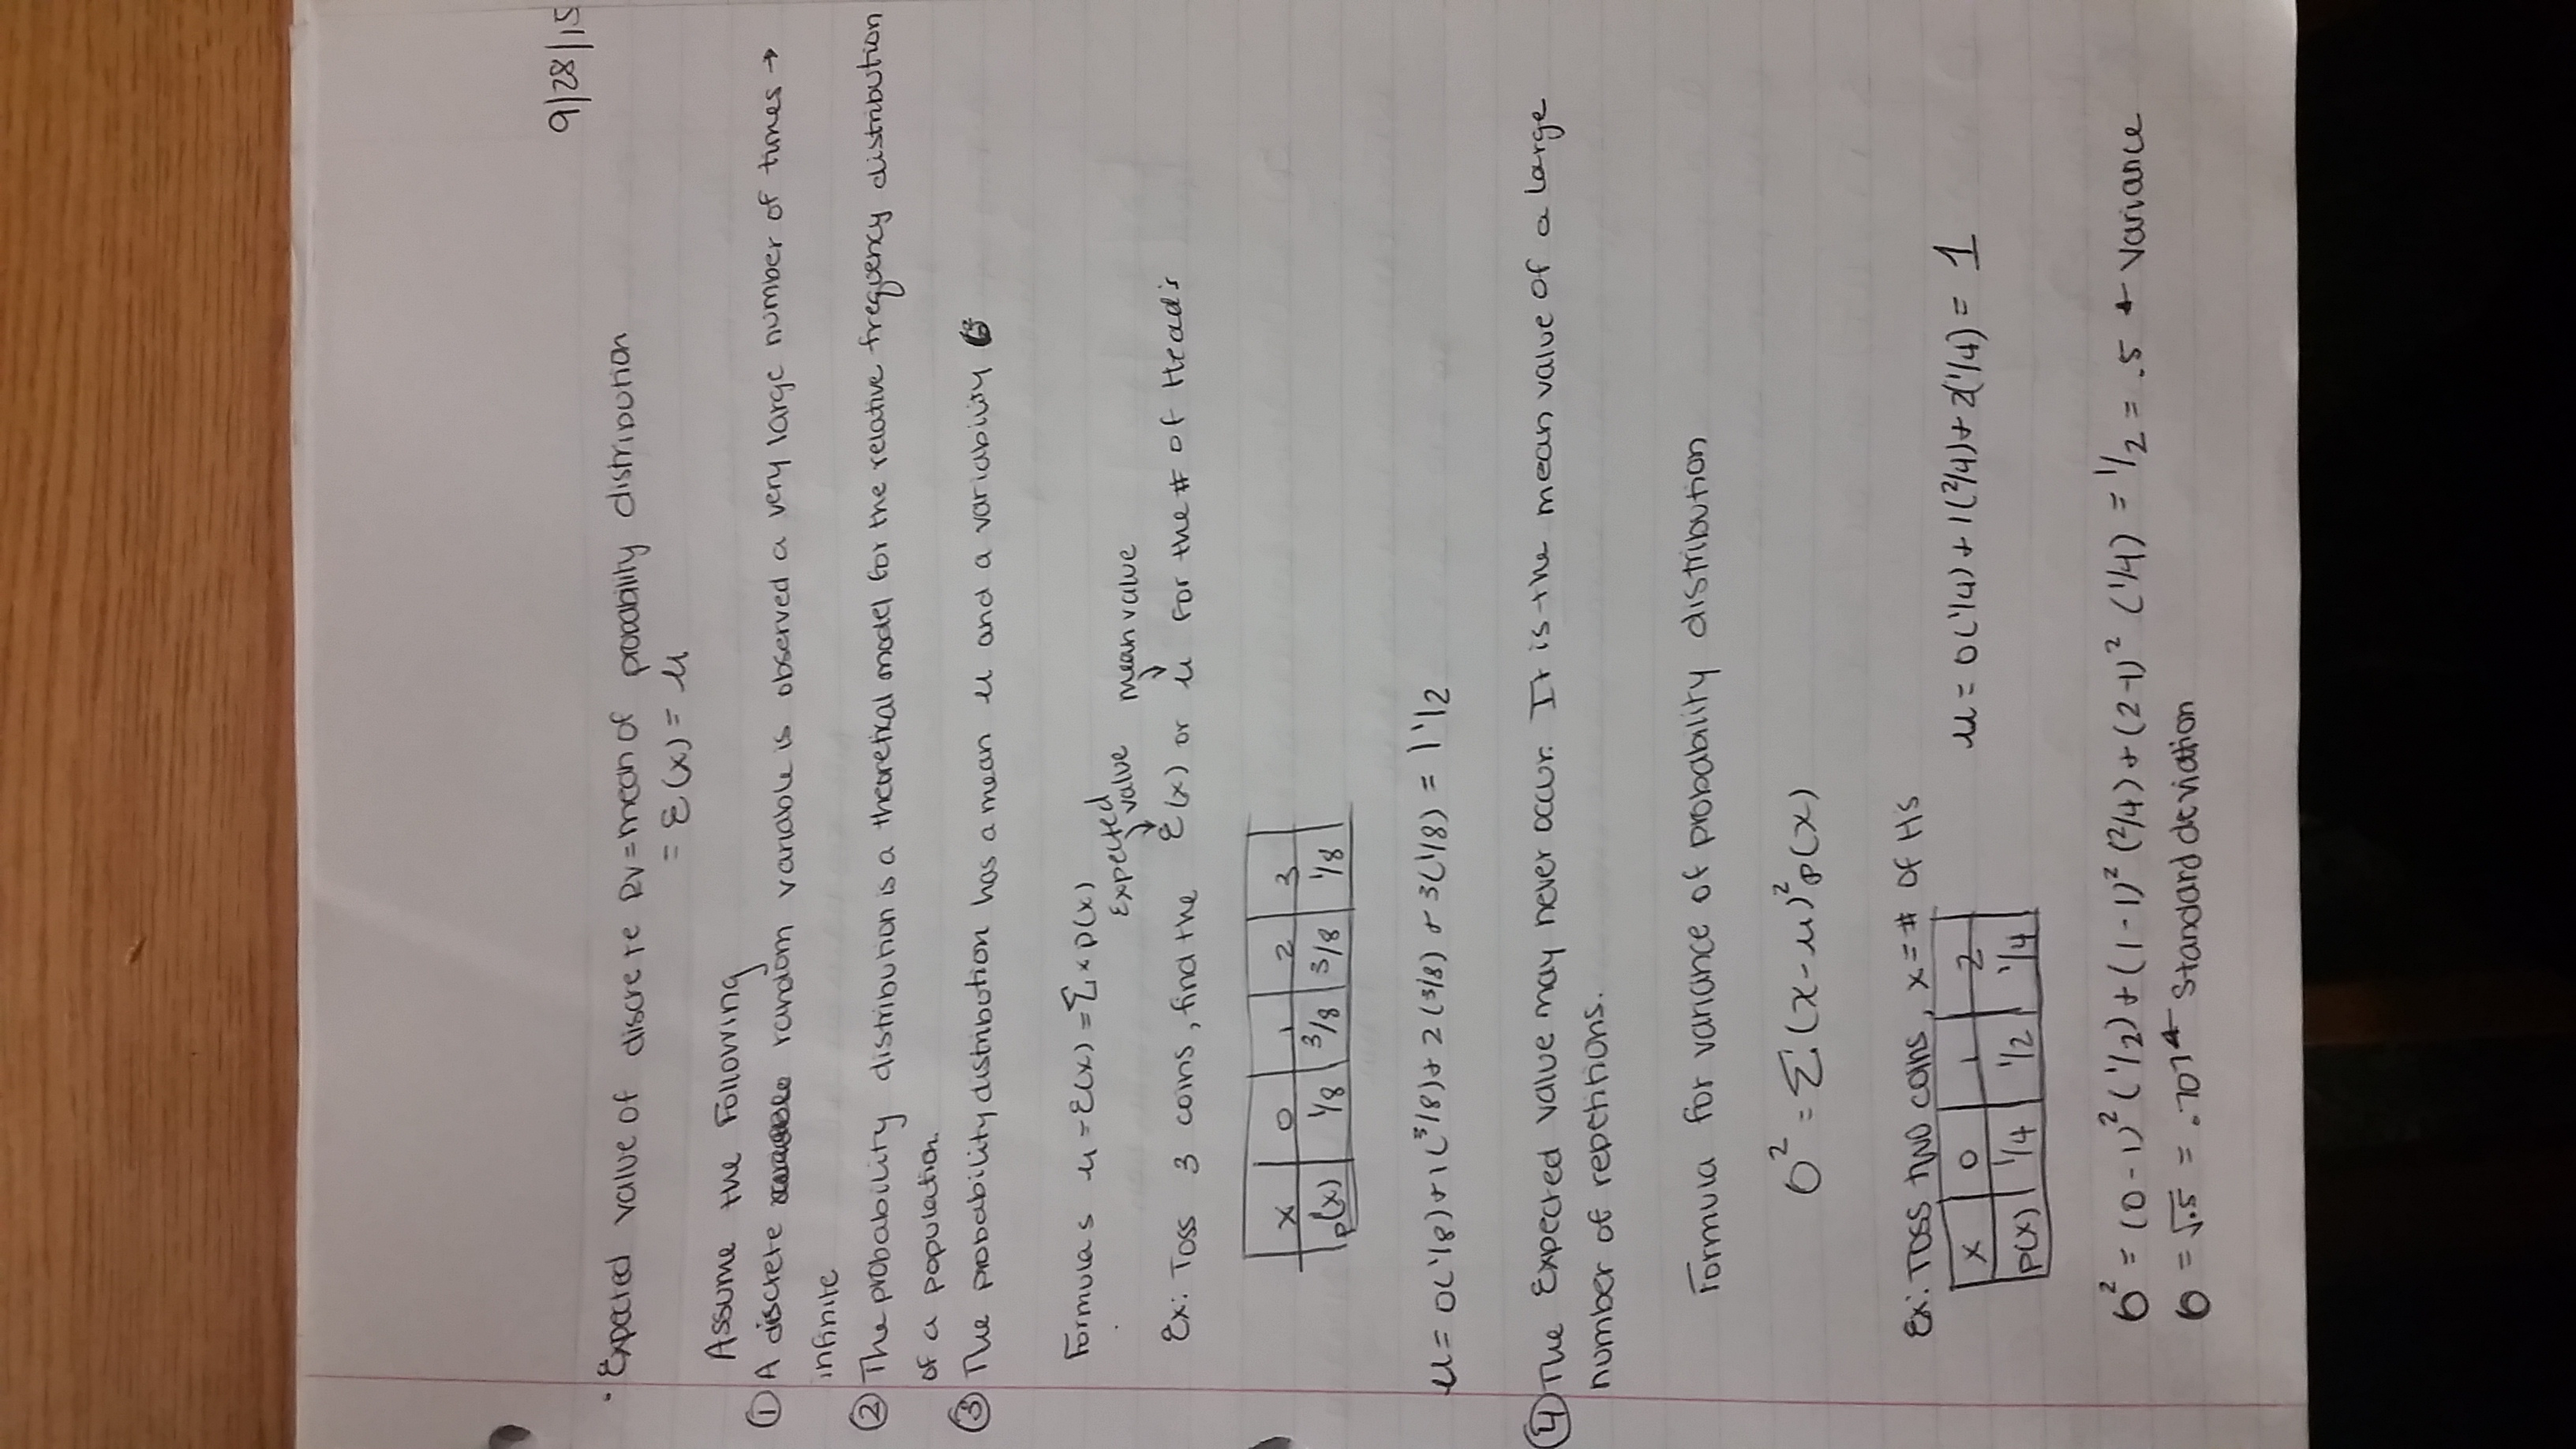 9/28/15
· Expected value of discrete RV = mean of probability distribution
= E(x) = μ
Assume the Following
① A discrete random variable is observed a very large number of times →
infinite
② The probability distribution is a theoretical model for the relative frequency distribution
of a population.
③ The probability distribution has a mean μ and a variability σ²
Formulas μ = E(x) = Σ x p(x)
Expected value mean value
Ex: Toss 3 coins, find the E(x) or μ for the # of Head's
x 0 1 2 3
p(x) 1/8 3/8 3/8 1/8
μ = 0(1/8) + 1(3/8) + 2(3/8) + 3(1/8) = 1 1/2
④ The Expected value may never occur. It is the mean value of a large
number of repetitions.
Formula for variance of probability distribution
σ² = Σ (x - μ)² p(x)
Ex: Toss two coins, x = # of H's
x 0 1 2
p(x) 1/4 1/2 1/4
μ = 0(1/4) + 1(2/4) + 2(1/4) = 1
σ² = (0-1)² (1/2) + (1-1)² (2/4) + (2-1)² (1/4) = 1/2 = .5 ← variance
σ = √.5 = .707 ← standard deviation